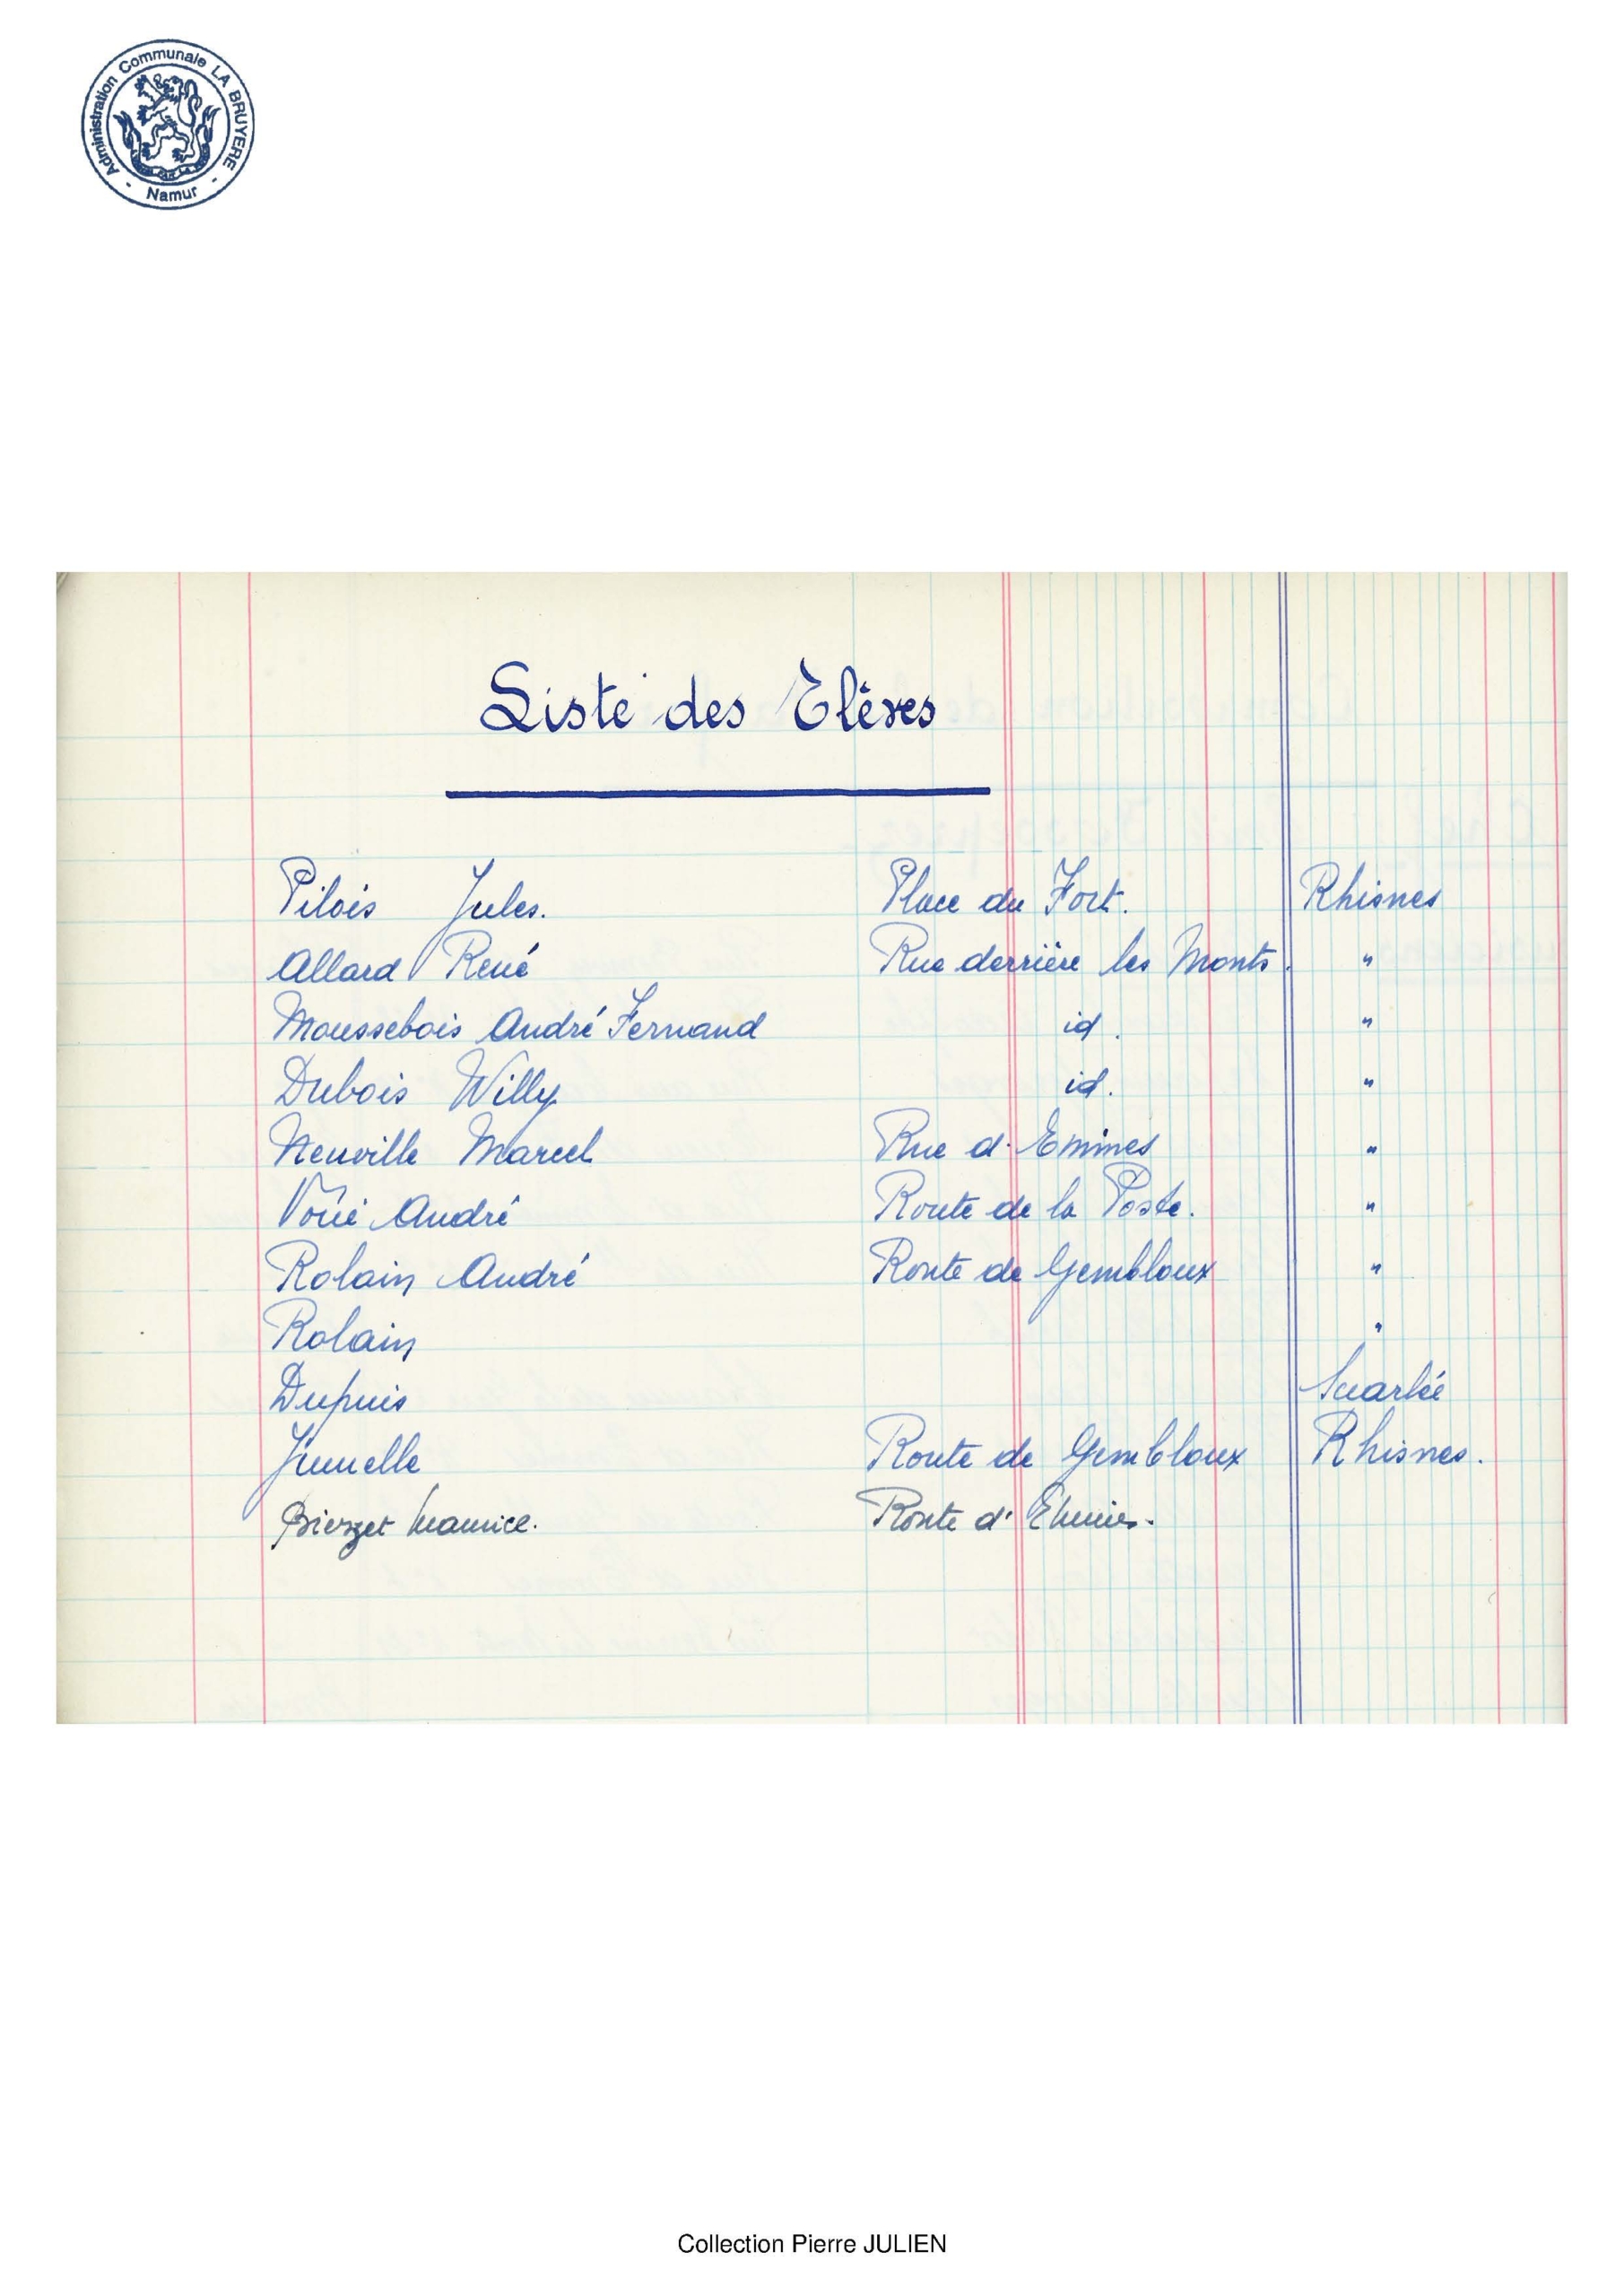 Administration Communale LA BRUYERE - Namur -
Liste des Elèves
Pilois Jules. Place du Fort. Rhisnes
Allard René Rue derrière les Monts. "
Moussebois André Fernand id. "
Dubois Willy id. "
Neuville Marcel Rue d'Emines "
Voué André Route de la Poste. "
Rolain André Route de Gembloux "
Rolain "
Dupuis Suarlée
Route de Gembloux Rhisnes.
Bierzet Maurice. Route d'
Collection Pierre JULIEN